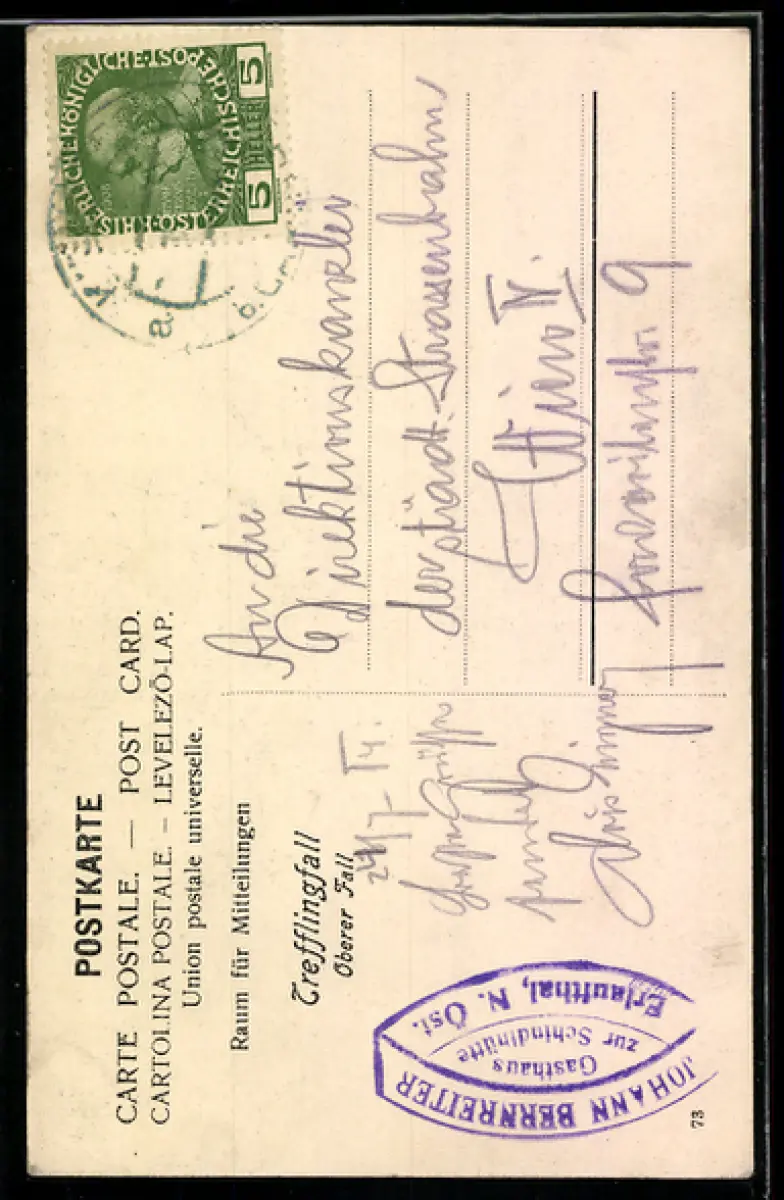 POSTKARTE
CARTE POSTALE. — POST CARD.
CARTOLINA POSTALE. – LEVELEZŐ-LAP.
Union postale universelle.
Raum für Mitteilungen
Trefflingfall
Oberer Fall
24/7 14.
Grüße
sendet
Alois
JOHANN BERNREITER
Gasthaus
zur Schindlhütte
Erlaufthal, N. Öst.
73
KAISERLICHE KÖNIGLICHE
ÖSTERREICHISCHE POST
5 HELLER 5
An die
Direktionskanzlei
der städt. Strassenbahn
Wien IV.
Favoritenstr. 9